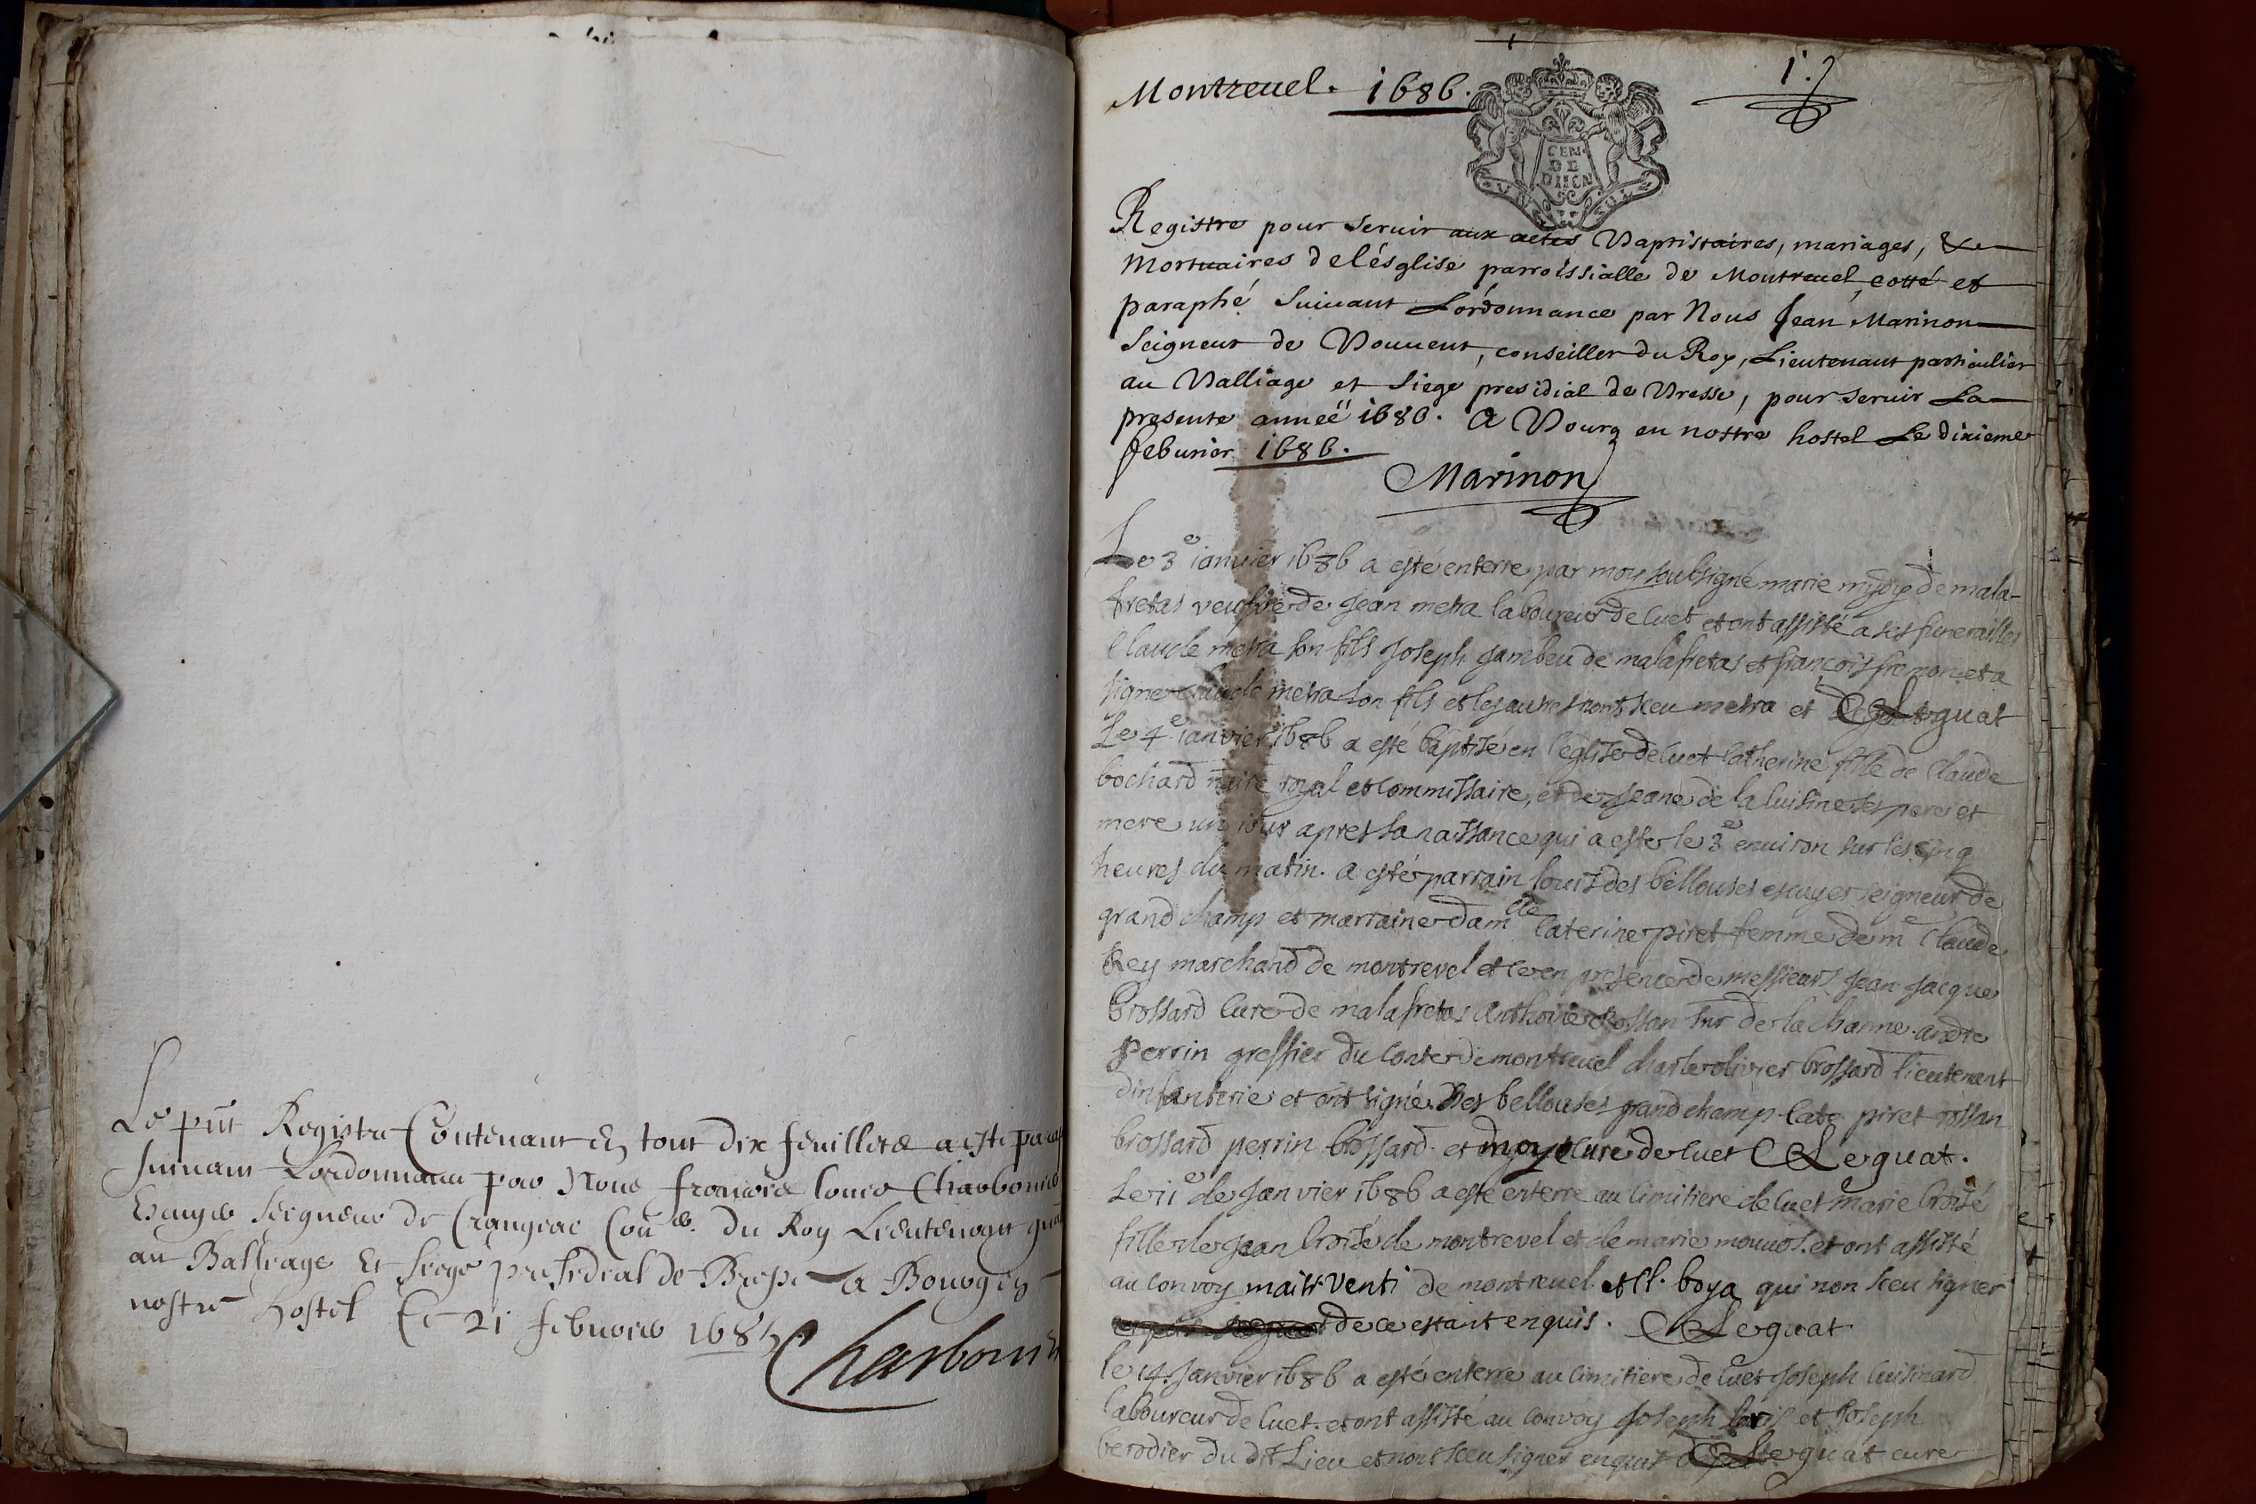 Le pñt Registre Contenant En tout dix feuilletz a esté
suivant Lordonnance par Nous françois louis Charbonnie
Escuyer Seigneur de Crangeac Con.er du Roy Lieutenant
au Balliage Et siege presidial de Bresse a Bourg En
nostre hostel Ce 21 febvrier 1685
Charbonni
Montreuel. 1686.
1.
CEN.
DE
DIECN
Registre pour seruir aux actes Baptistaires, mariages, &
Mortuaires de lésglise parroissialle de Montreuel, cotté et
paraphé suiuant Lórdonnance par Nous Jean Marinon
Seigneur de Bouuent, conseiller du Roy, Lieutenant particulier
au Balliage et siege presidial de Bresse, pour seruir La
presente anneë 1686. A Bourg en nostre hostel Le dixieme
feburier 1686.
Marinon
Le 3e ianvier 1686 a esté enterre par moy soubsigné marie de mala-
fretas veufve de Jean metra laboureur de cuet et ont assisté a ses funerailles
Claude metra son fils Joseph Jambeu de malafretas et françois et a
signe Claude metra son fils et les autres nont sceu metra et Leguat
Le 4e ianvier 1686 a esté baptisé en l'eglise de cuet Catherine fille de Claude
bochard royal et commissaire, et de Jeane de la cuisine ses pere et
mere un iour apres sa naissance qui a este le 3e enuiron sur les cinq
heures du matin. a esté parrain louis des bellouses escuyer seigneur de
grand champ et marraine damlle Caterine piret femme de me Claude
Rey marchand de montrevel et ce en presence de messieurs Jean Jacque
brossard curé de malafretas Anthoine Rossan sur de la Charme. andre
Perrin greffier du conte de montreuel charle olivier brossard lieutenant
dinfanterie et ont signé Des bellouses grand champ. Cate piret rossan
brossard perrin brossard. et moy Curé de cuet Leguat.
Le 11e de Janvier 1686 a esté enterre au Cimitiere de cuet marie Croisé
fille de Jean Croisé de montrevel et de marie et ont assisté
au convoy mait. Venti de montreuel et Cl. boya qui non sceu signer
de ce estant enquis. Leguat
le 14. Janvier 1686 a esté enterre au Cimitiere de cuet Joseph Cuisinard
laboureur de Cuet. et ont assisté au convoy Joseph et Joseph
berodier du dit Lieu et nont sceu signer enquis Leguat curé